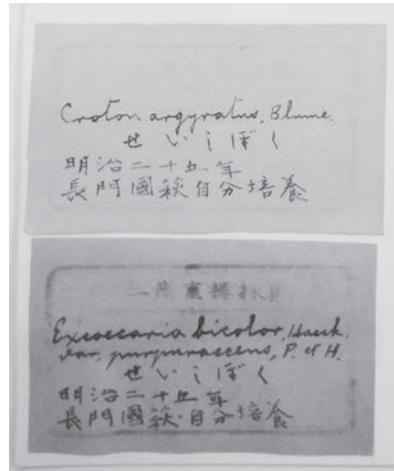 Croton argyratus, Blume.
せいしぼく
明治二十五年
長門國萩自分培養
Excoecaria bicolor, Hassk.
var. purpurascens, P. et H.
せいしぼく
明治二十五年
長門國萩自分培養